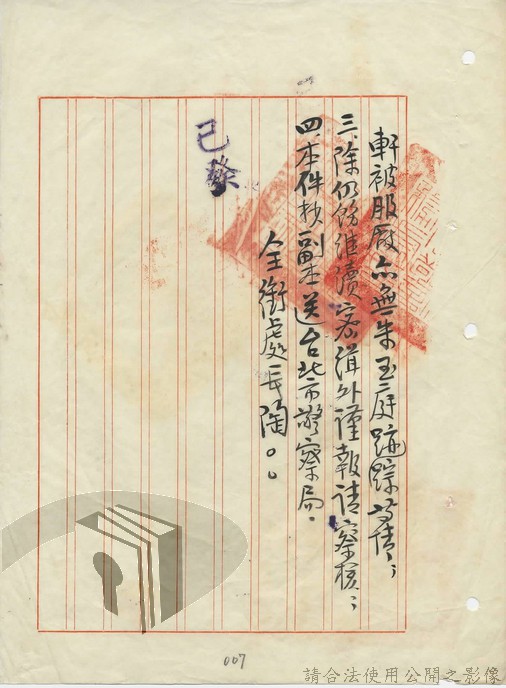 軒被服廠亦無朱玉庭踪跡等情；
三、除仍飭繼續密緝外謹報請察核；
四、本件抄副本送台北市警察局。
全銜處長陶○○
已發
007
請合法使用公開之影像